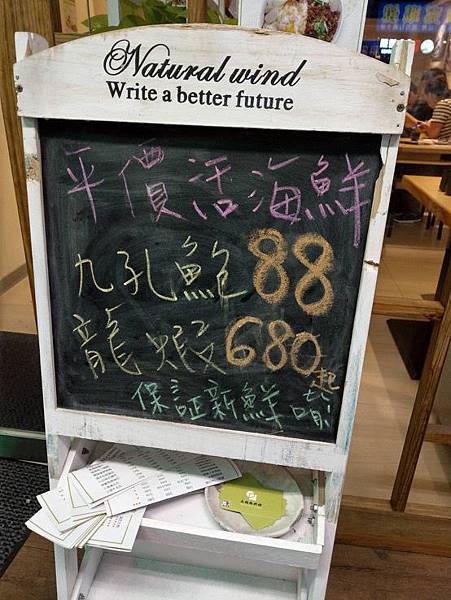 Natural wind
Write a better future
平價活海鮮
九孔鮑88
龍蝦680起
保証新鮮唷